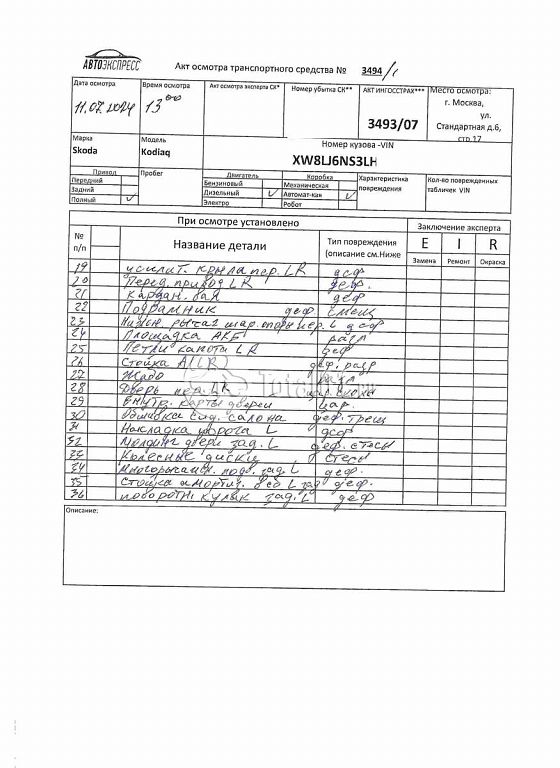 АВТОЭКСПРЕСС
Акт осмотра транспортного средства № 3494/1
Дата осмотра
11.07.2024
Время осмотра
13 00
Акт осмотра эксперта СК*
Номер убытка СК**
АКТ ИНГОССТРАХ***
3493/07
Место осмотра:
г. Москва,
ул.
Стандартная д.6,
стр.17
Марка
Skoda
Модель
Kodiaq
Номер кузова -VIN
XW8LJ6NS3LH
Привод
Передний
Задний
Полный ✓
Пробег
Двигатель
Бензиновый
Дизельный ✓
Электро
Коробка
Механическая
Автомат-кая ✓
Робот
Характеристика повреждения
Кол-во поврежденных табличек VIN
При осмотре установлено
Заключение эксперта
№ п/п
Название детали
Тип повреждения (описание см.Ниже
E I R
Замена Ремонт Окраска
19 усилит. крыла пер. LR деф
20 Перед. привод LR деф.
21 Кардан. вал деф
22 Подрамник деф смещ
23 Нижн. рычаг шар. опор пер. L деф
24 Площадка АКБ разл
25 Петли капота LR деф
26 Стойка А(LR) деф. разр
27 Жабо разл
28 Дверь пер. LR
29 Внутр. карты двери цар.
30 Обшивка сид. салона деф. трещ
31 Накладка порога L деф
32 Молдинг двери зад. L деф. стесы
33 Колесные диски стесы
34 Многорычажн. подв. зад. L деф.
35 Стойка амортиз. зад деф.
36 поворотн. кулак зад. L деф
Описание: